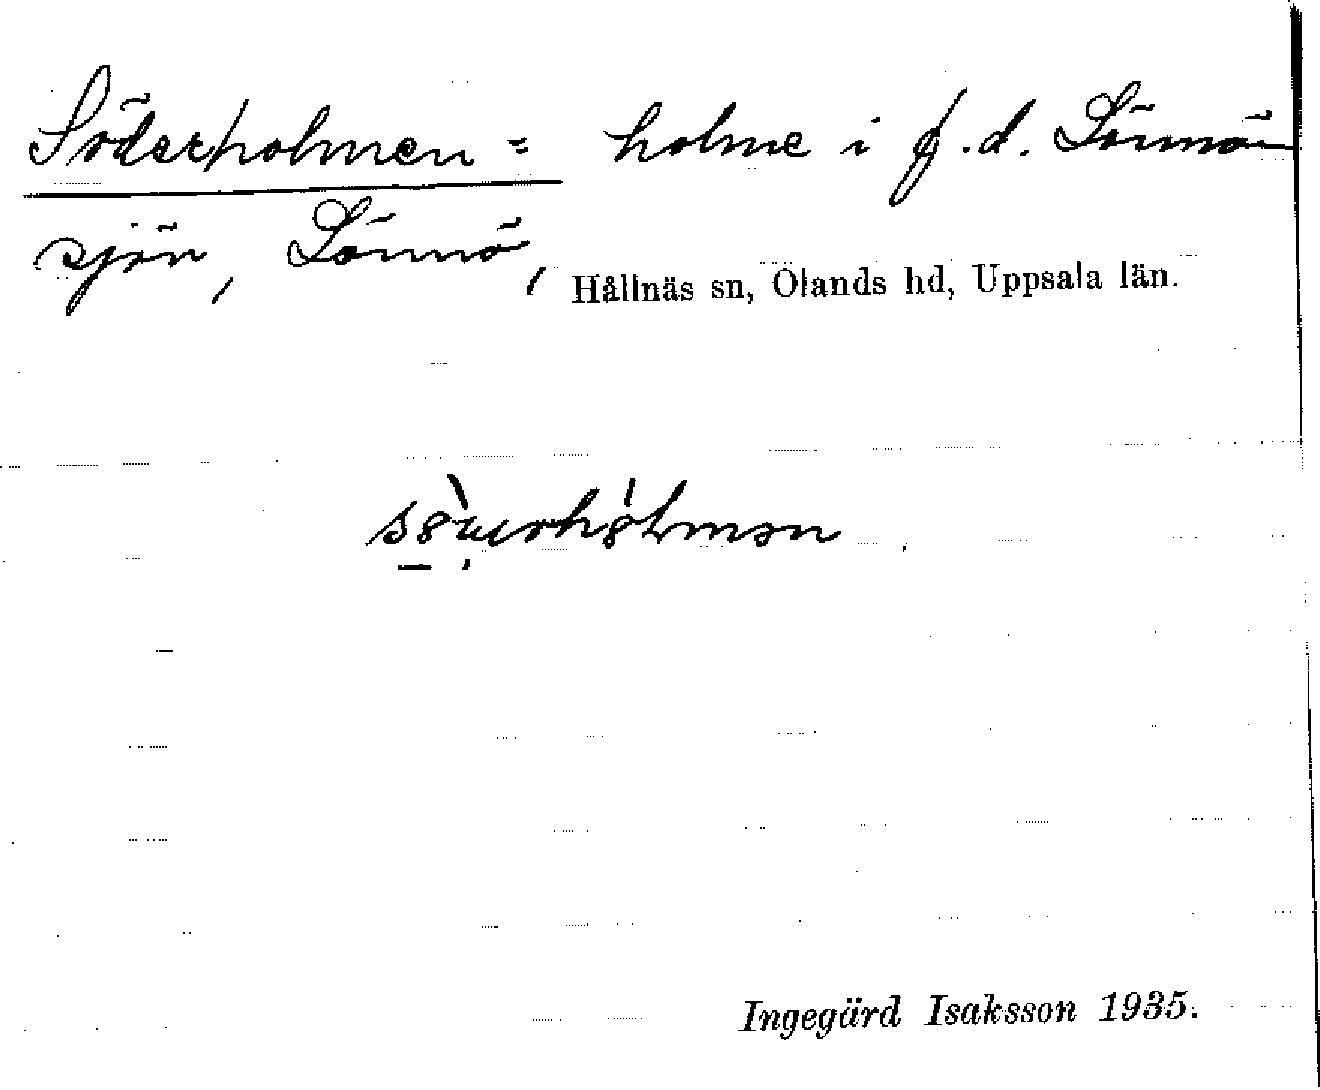 Söder/holmen = holme i f.d. Lönnö-
sjön, Lönnö,
Hållnäs sn, Ölands hd, Uppsala län.
Ingegärd Isaksson 1935.